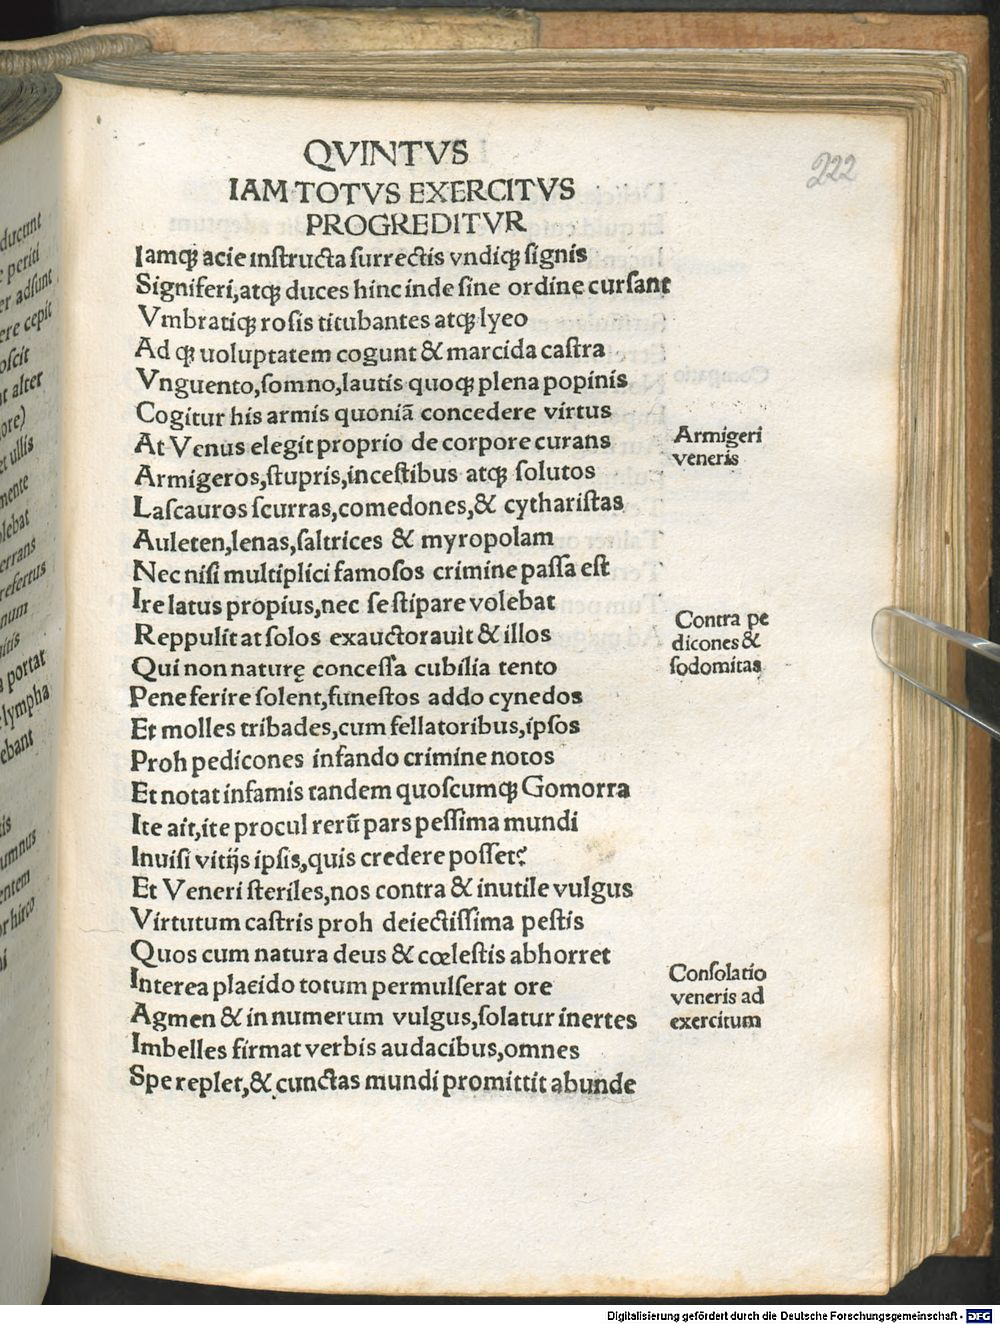 QVINTVS
222
IAM TOTVS EXERCITVS
PROGREDITVR
Iamq; acie instructa surrectis vndiq; signis
Signiferi,atq; duces hinc inde sine ordine cursant
Vmbratiq; rosis titubantes atq; lyeo
Ad q; uoluptatem cogunt & marcida castra
Vnguento,somno,lautis quoq; plena popinis,
Cogitur his armis quoniā concedere virtus
At Venus elegit proprio de corpore curans
Armigeri
veneris
Armigeros,stupris,incestibus atq; solutos
Lascauros scurras,comedones,& cytharistas
Auleten,lenas,saltrices & myropolam
Nec nisi multiplici famosos crimine passa est
Ire latus propius,nec se stipare volebat
Reppulit at solos exauctorauit & illos
Contra pe
dicones &
sodomitas
Qui non naturę concessa cubilia tento
Pene ferire solent,funestos addo cynedos
Et molles tribades,cum fellatoribus,ipsos
Proh pedicones infando crimine notos
Et notat infamis tandem quoscumq; Gomorra
Ite ait,ite procul rerū pars pessima mundi
Inuisi vitijs ipsis,quis credere posset?
Et Veneri steriles,nos contra & inutile vulgus
Virtutum castris proh deiectissima pestis
Quos cum natura deus & cœlestis abhorret
Interea placido totum permulserat ore
Consolatio
veneris ad
exercitum
Agmen & in numerum vulgus,solatur inertes
Imbelles firmat verbis audacibus,omnes
Spe replet,& cunctas mundi promittit abunde
ducunt
e periti
er adsunt
ere cepit
oscit
alter
ore)
et ullis
mente
olebat
errans
refertus
num
a portat
lympha
ebant
is
umnus
entem
or hirco
Digitalisierung gefördert durch die Deutsche Forschungsgemeinschaft - DFG